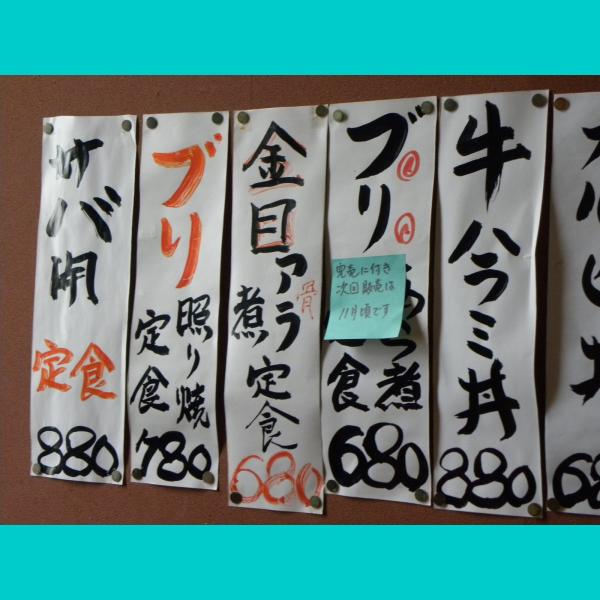 サバ開
定食
880
ブリ
照り焼
定食
780
金目アラ
骨
煮定食
680
ブリ
あら煮
食
680
完売に付き
次回販売は
11月頃です
牛ハラミ丼
880
丼
680